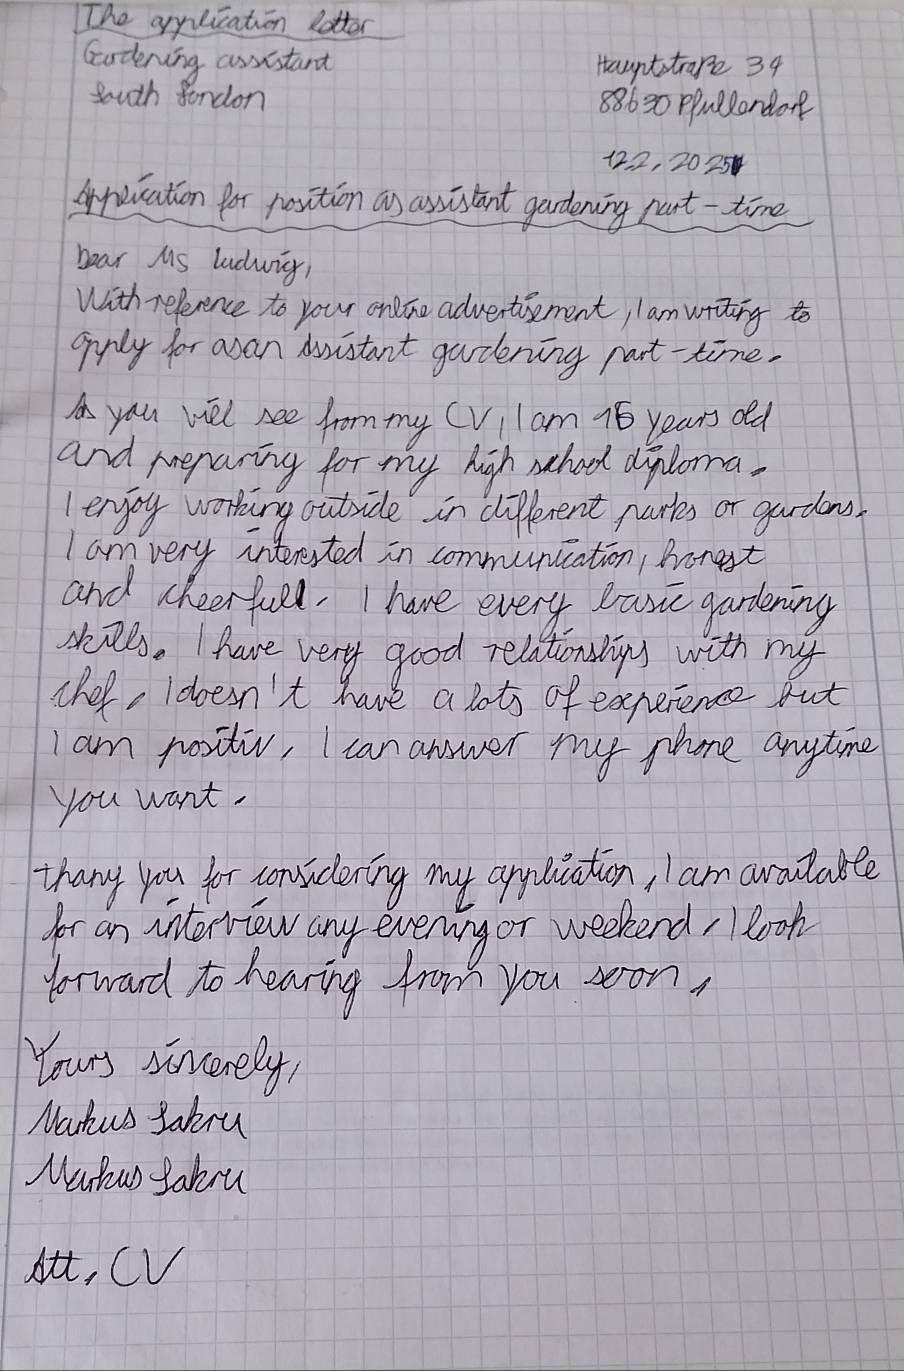 The application letter
Gardening assistant
South London
Hauptstraße 34
88630 Pfullendorf
12.2, 2025
Application for position as assistant gardening part-time
Dear Ms Ludwig,
With reference to your online advertisement, I am writing to
apply for as an Assistant gardening part-time.
As you will see from my CV, I am 16 years old
and preparing for my high school diploma.
I enjoy working outside in different parks or gardens.
I am very interested in communication, honest
and cheerfull. I have every basic gardening
skills. I have very good relationships with my
chef, I doesn't have a lots of experience but
I am positiv, I can answer my phone anytime
you want.
thany you for considering my application, I am available
for an interview any evening or weekend, I look
forward to hearing from you soon,
Yours sincerely,
Markus Sakru
Markus Sakru
Att, CV